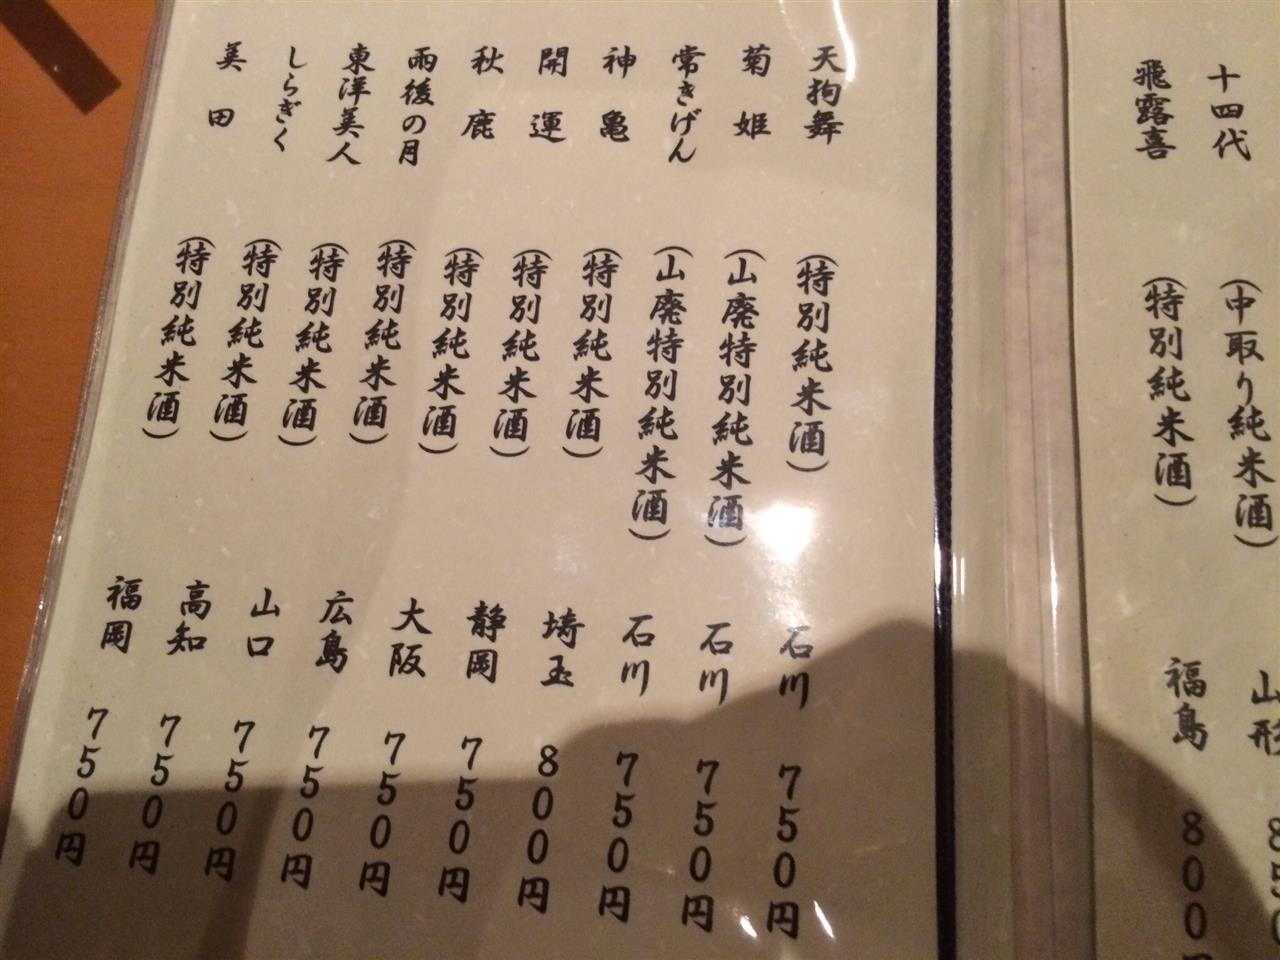 十四代 (中取り純米酒) 山形 850
飛露喜 (特別純米酒) 福島 800
天狗舞 (特別純米酒) 石川 750円
菊姫 (山廃特別純米酒) 石川 750円
常きげん (山廃特別純米酒) 石川 750円
神亀 (特別純米酒) 埼玉 800円
開運 (特別純米酒) 静岡 750円
秋鹿 (特別純米酒) 大阪 750円
雨後の月 (特別純米酒) 広島 750円
東洋美人 (特別純米酒) 山口 750円
しらぎく (特別純米酒) 高知 750円
美田 (特別純米酒) 福岡 750円